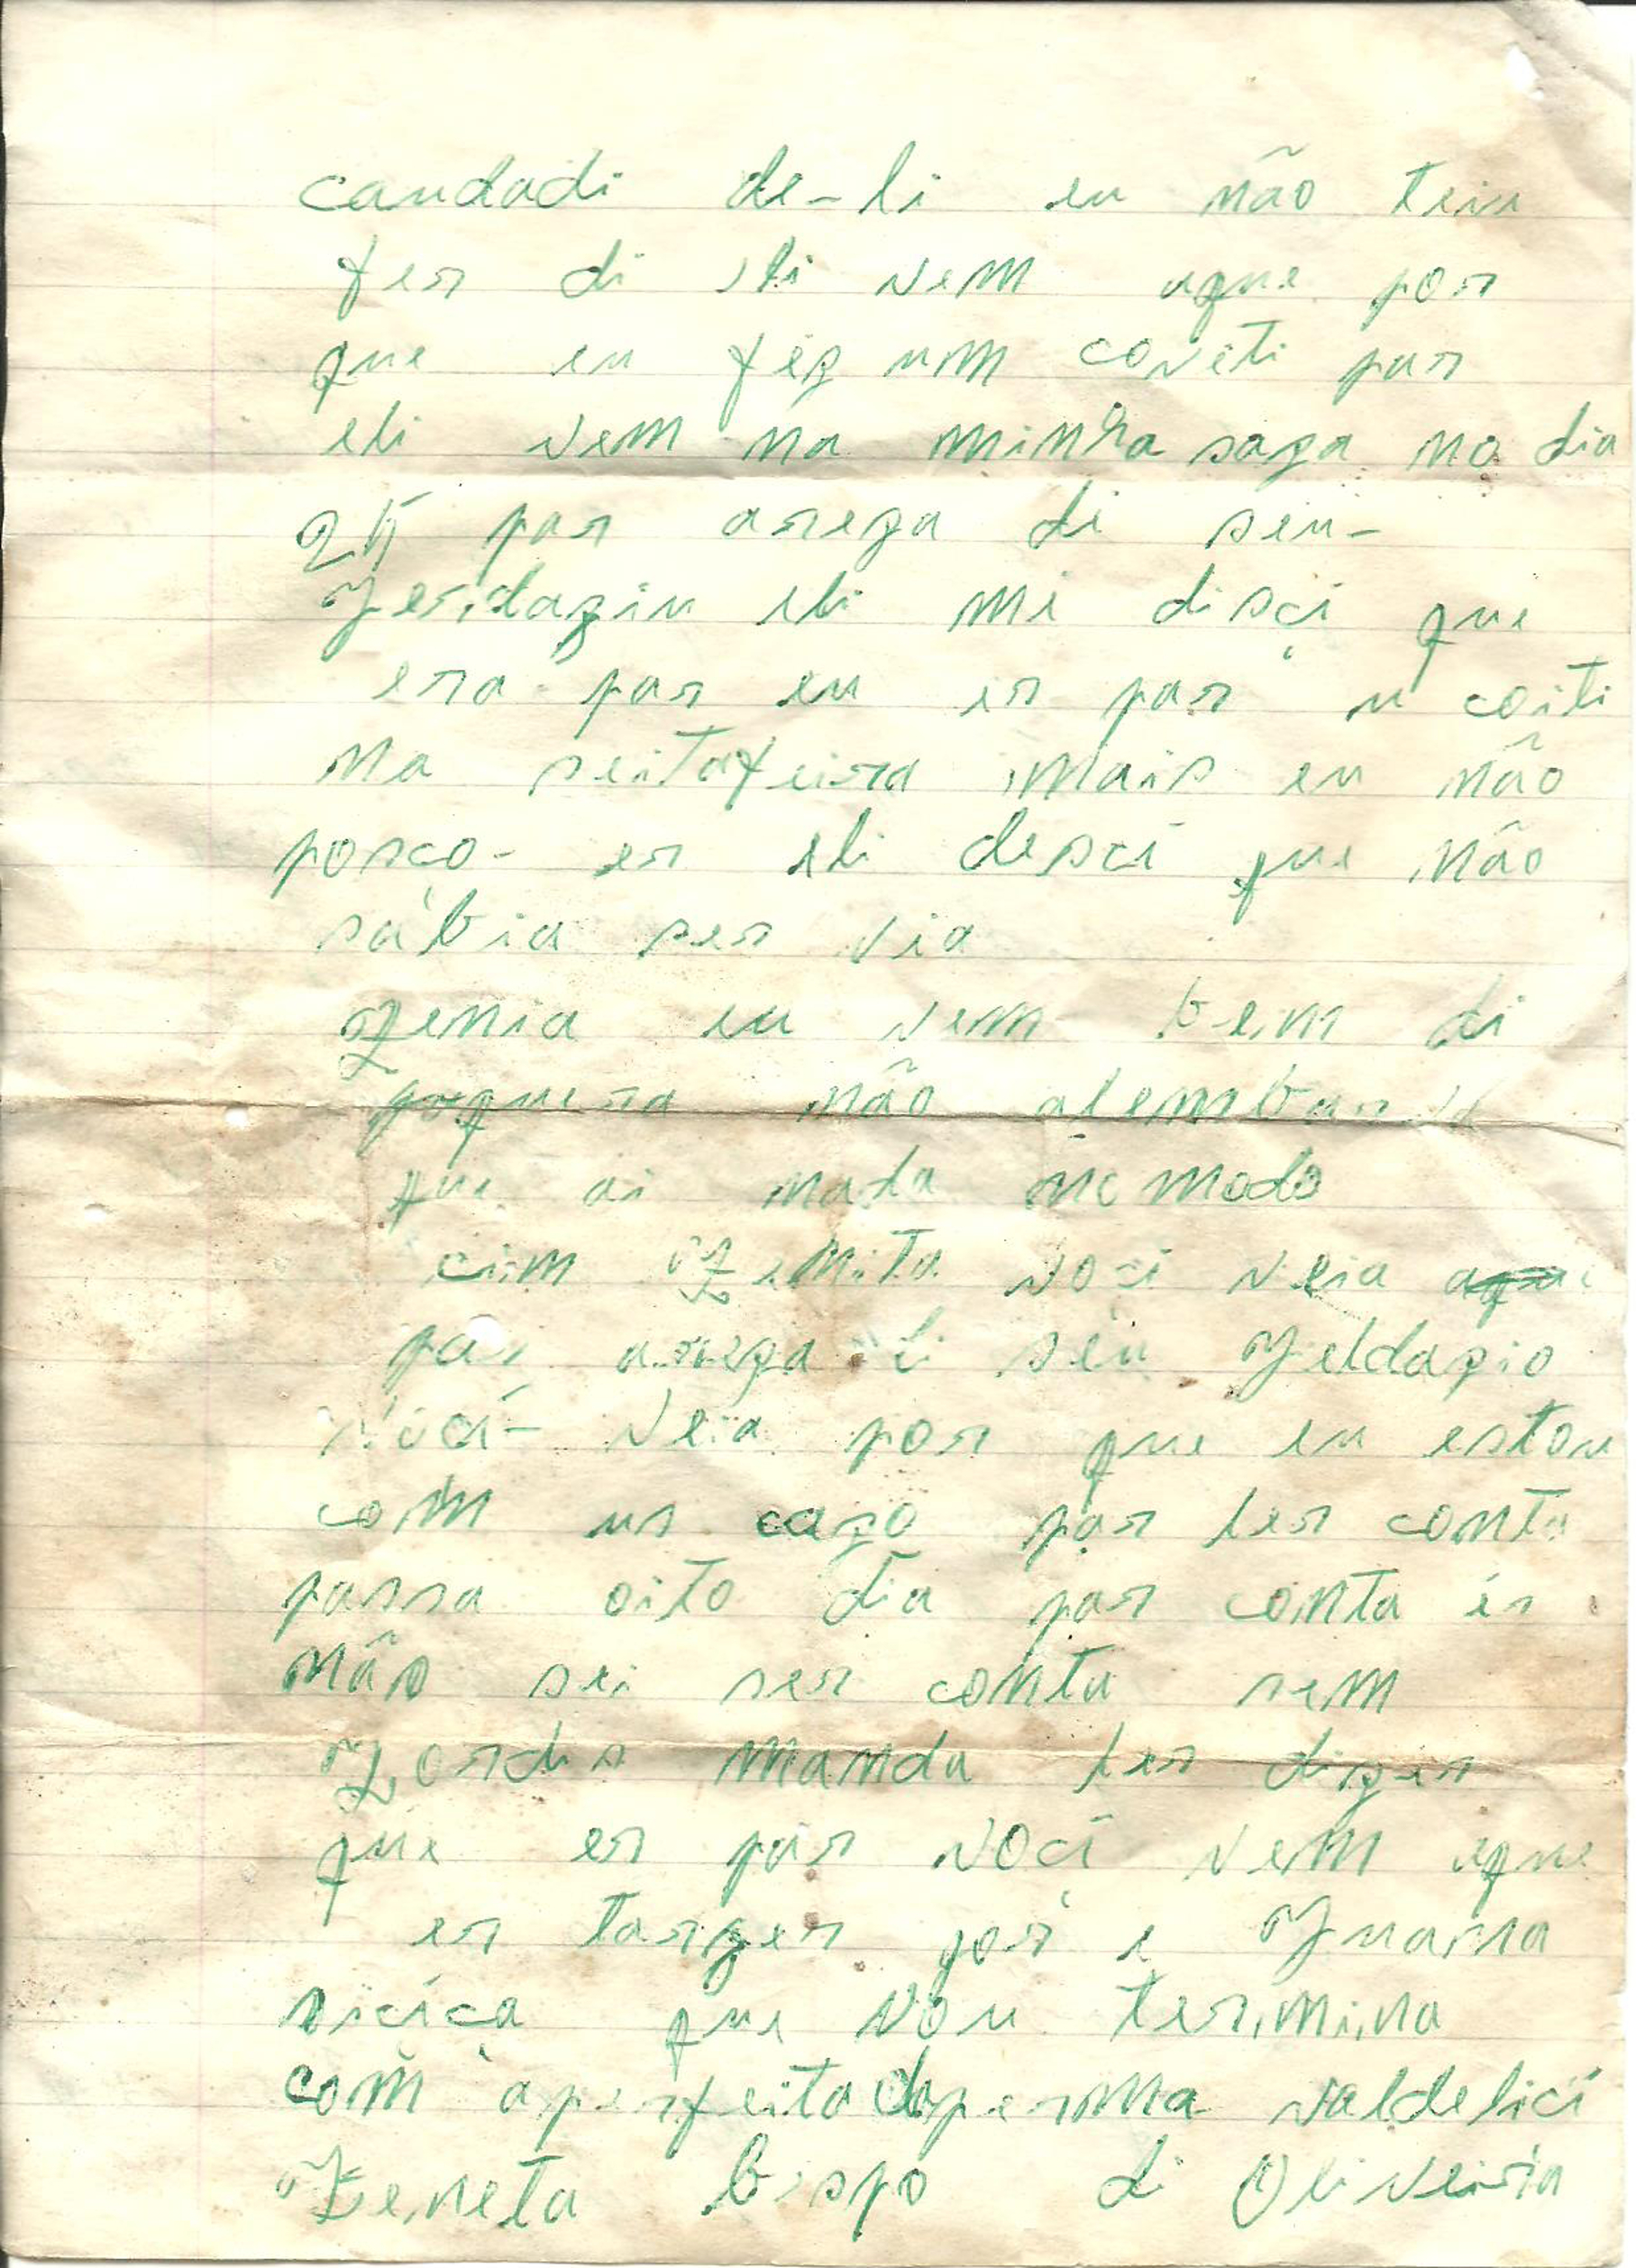 caudadi de-li eu não teiu
fer di eli vem aque por
que eu féz um coveti par
eli vem na minha saza no dia
par areza di seu-
eli mi disci que
era par eu ir par u coiti
na seitafeira mais eu não
posco- er eli desci que não
sábia ser via
Zenia eu vem bem di
não
que ai nada
cim Zenita voci veia aque
par areza di seu Jeldazio
voci- veia por que eu estou
com us cazo par ler conta
passa oito dia par conta ér
não sei ser conta sem
manda ler dizer
que er par voci vem aque
er tarzer e
sicica que vou termina
com aperfeita da perma valdelici
Zeneta bispo di Oliveiria